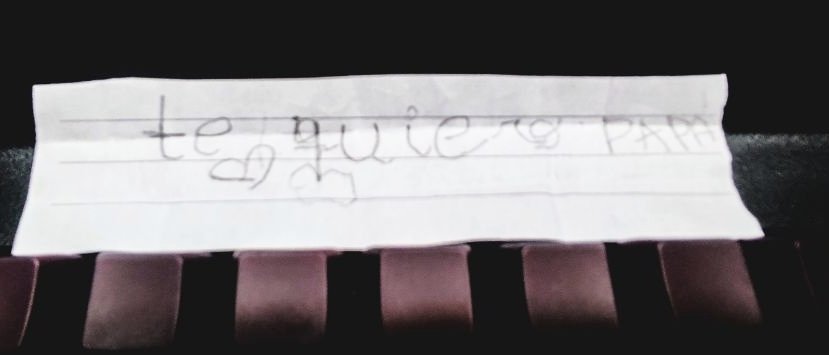 te quiero PAPA